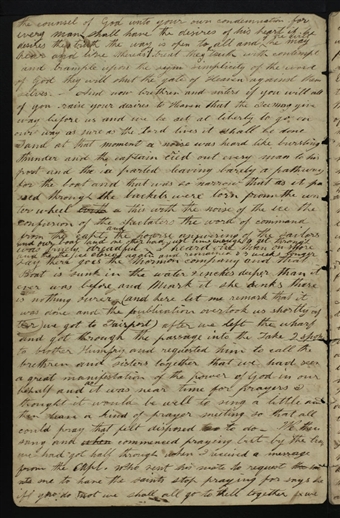 the counsel of God unto your own condemnation for
every man shall have the desires of his heart if he
desires the truth the way is open to all and he may
hear and live
and trample upon the simplicity of the word
of God they will shut the gate of Heaven against them
selves. And now brethren and sisters if you will all
of you raise your desires to Heaven that the ice may give
way before us and we be set at liberty to go on
our way as sure as the Lord lives it shall be done
and at that moment a noise was heard like bursting
thunder and the captain cried out every man to his
post and the ice parted leaving barely a pathway
for the boat and that was so narrow that as it pa
ssed through the buckets were torn from the wa
ter wheel this with the noise of the ice the
confusion of the spectators the word of command
from the captain the hoarse answering of the sailors
was truly dreadful
our boat and one other had just time enough to get through
and the ice closed again and remained 3 weeks longer
say here goes the Mormon company and that
Boat is sunk in the water inches deeper than it
ever was before and Mark it she sinks there
is nothing surer (and here let me remark that it
was done and the publication overtook us shortly af
ter we got to Fairport) after we left the wharf
and got through the passage into the Lake I spoke
to brother Humfry and requested him to call the
brethren and sisters together that we had seen
a great manifestation of the power of God in our
behalf and as it was near time for prayers I
thought it would be well to sing a little and
then have a kind of prayer meeting so that all
could pray that felt disposed to do. We then
sung and commenced praying but by the time
we had got half through I received a message
from the Capt. who sent his mate to request
me to have the saints stop praying for says he
if you do not we shall all go to hell together